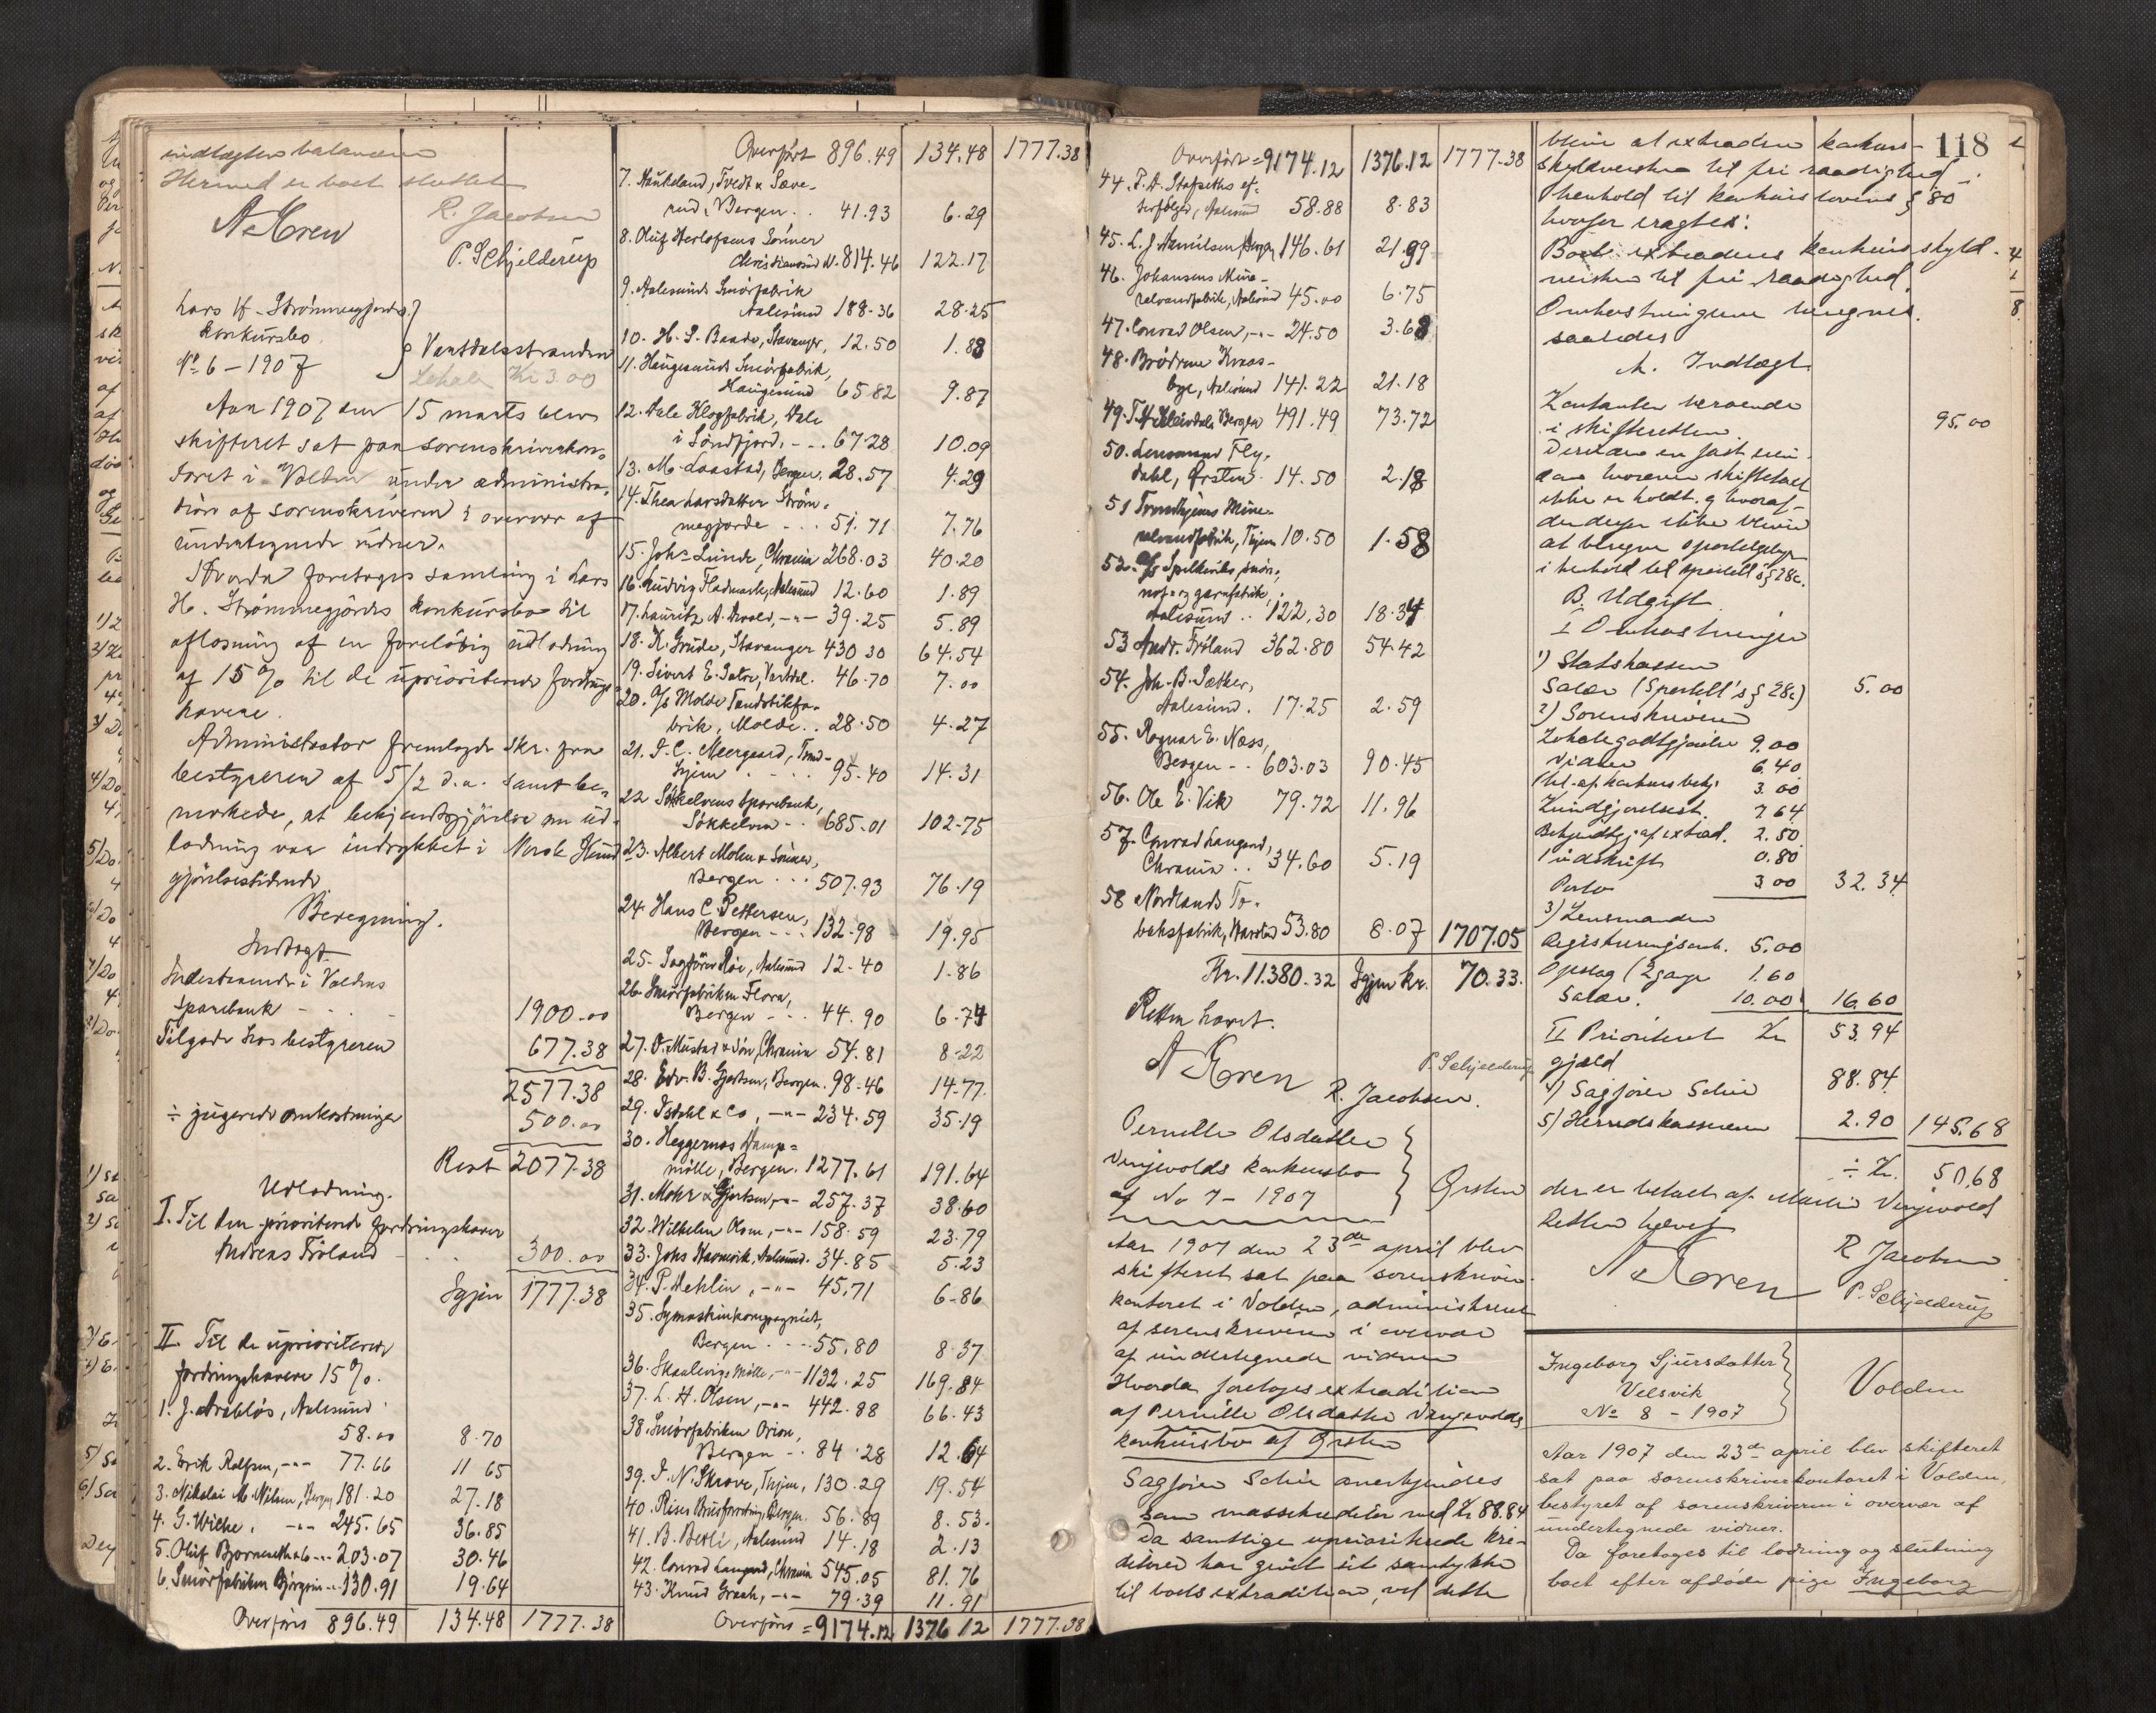 indtægten balancere
Hermed er boet sluttet
A Koren R. Jacobsen
P. Schjelderup
Lars H. Strömmegjerdes
konkursbo
No 6 - 1907
Vartdalsstranden
Lokale Kr 3.00
Aar 1907 den 15 marts blev
skifteret sat paa sorenskriverkon-
toret i Volden under administra-
tion af sorenskriveren i overvær af
undertegnede vidner.
Hvorda foretoges samling i Lars
H. Strømmegjerdes konkursbo til
aflosning af en foreløbig udlodning
af 15% til de uprioriterede fordrings-
havere.
Administrator fremlagde skr. fra
bestyreren af 5/2 d.a. samt be-
mærkede, at bekjendtgjörelse om ud-
lodning var indrykket i Norsk Kund
gjörelsestidende
Beregning.
Indtægt
Indestaaende i Voldens
Sparebank - . . 1900.00
Tilgode hos bestyreren 677.38
2577.38
÷ pügerede omkostninger 500.00
Rest 2077.38
Udlodning.
I. Til den prioriterede fordringshaver
Andreas Fröland - . . 300.00
Igjen 1777.38
II. Til de uprioriterede
fordringshavere 15%.
1. J. Aarbløs, Aalesund
58.00 8.70
2. Erik Rolfsen, -"- 77.66 11 65
3. Nikolai M. Nilsen, Bergen 181.20 27.18
4. G. Wilke, -"- 245.65 36.85
5. Oluf Bjorneseth & Co -"- 203.07 30.46
6. Smörfabriken Bjørgvin -"- 130.91 19.64
Overføres 896.49 134.48 1777.38
Overført 896.49 134.48 1777.38
7. Haukeland, Tvedt & Sæve-
rud, Bergen . . 41.93 6.29
8. Oluf Herlofsens Sönner
Christiansund N. 814.46 122.17
9. Aalesunds Smörfabrik
Aalesund 188.36 28.25
10. H. S. Baade, Stavanger, 12.50 1.88
11. Haugesunds Smörfabrik,
Haugesund 65.82 9.87
12. Dale Klogfabrik, Dale
i Söndfjord, - . . 67.28 10.09
13. M. Laastad, Bergen, 28.57 4.29
14. Thea Larsdatter Ström-
megjerde - . . . 51.71 7.76
15. Johs Lunde, Chrania 268.03 40.20
16. Ludvig Fladmark, Aalesund 12.60 1.89
17. Lauritz A. Aroald, -"- 39.25 5.89
18. K. Grude, Stavanger 430 30 64.54
19. Sivert E. Satre, Vartdal. 46.70 7.00
20. A/S Molde Tændstikfa-
brik, Molde . . 28.50 4.27
21. I. C. Meergaard, Trond-
hjem . . . . 95.40 14.31
22 Søkkelvens Sparebank,
Søkkelven . . 685.01 102.75
23. Albert Mohn & Sönner,
Bergen . . . 507.93 76.19
24. Hans C. Pettersen,
Bergen - . . 132.98 19.95
25. Sagfører Röe, Aalesund 12.40 1.86
26. Smörfabriken Flora,
Bergen - . . 44.90 6.74
27. O. Mustad & Sön, Chrania 54.81 8.22
28. Edv. B. Gjertsen, Bergen. 98.46 14.77.
29. Isdahl & Co, -"- 234.59 35.19
30. Heggernæs Damp-
mölle, Bergen. 1277.61 191.64
31. Mohr & Gjertsen, -"- 257.37 38.60
32. Wilhelm Olsen, -"- 158.59 23.79
33. Johs Havnevik, Aalesund. 34.85 5.23
34. P. Mehlin, -"- 45.71 6.86
35. Symaskinkompagniet,
Bergen . . . . 55.80 8.37
36. Skaalevigs Mölle, -"- 1132.25 169.84
37. L. H. Olsen, -"- 442.88 66.43
38. Smörfabriken Orion,
Bergen - . . 84.28 12.64
39. I. N. Skrove, Thjem, 130.29 19.54
40. Rises Brusforretning, Bergen. 56.89 8.53.
41. B. Berli, Aalesund 14.18 2.13
42. Conrad Langaard, Chrania 545.05 81.76
43. Knud Graah, -"- 79.39 11.91
Overføres = 9174.12 1376 12 1777.38
118
Overført = 9174.12 1376.12 1777.38
44. F. A. Stafseths ef-
terfølger, Aalesund 58.88 8.83
45. L. J. Arnulsen, Bergen 146.61 21.99
46. Johansens Mine-
ralvandfabrik, Aalesund 45.00 6.75
47. Conrad Olsen, -"- 24.50 3.68
48. Brödrene Kraas-
bye, Aalesund 141.22 21.18
49. T. H. Kleivdal, Bergen 491.49 73.72
50. Lensmand Fly-
dahl, Ørsten . 14.50 2.18
51 Trondhjems Mine-
ralvandfabrik, Thjem 10.50 1.58
52. A/S Spilkeviks snøre,
not- og garnfabrik,
Aalesund . . 122.30 18.34
53 Andr. Fröland 362.80 54.42
54. Joh. B. Sæther,
Aalesund . 17.25 2.59
55. Ragnar E. Næss,
Bergen - . 603.03 90.45
56. Ole E. Vik 79.72 11.96
57. Conrad Langaard,
Chrania . . 34.60 5.19
58 Nordlands To-
baksfabrik, Harstad 53.80 8.07 1707.05
Kr. 11.380.32 Igjen kr. 70.33.
Retten hævet.
A Koren P. Schjelderup
R. Jacobsen.
Pernille Olsdatter
Vinjevolds konkursbo
af No 7 - 1907
Ørsten
Aar 1907 den 23de april blev
skifteret sat paa sorenskriver-
kontoret i Volden, administreret
af sorenskriveren i overvær
af undertegnede vidner
Hvorda foretoges extradition
af Pernille Olsdatter Vinjevolds
konkursbo af Ørsten
Sagfører Schie anerkjendes
som massekreditor med Kr 88.84
Da samtlige uprioriterede kre-
ditorer har givet sit samtykke
til boets extradition, vil dette
blive at extradere konkurs-
skyldnersken til fri raadighed
i henhold til konkurslovens § 80
hvorfor eragtes:
Boet extraderes konkursskyld-
nersken til fri raadighed.
Omkostningerne beregnes
saaledes
A. Indtægt
Kontanter beroende
i skifteretten 95.00
Desuden en fast eien-
dom hvorover skiftetaxt
ikke er holdt, og hvoraf
der derfor ikke bliver
at beregne sportelgebyr
i henhold til sportell's § 28c.
B. Udgift
I Omkostninger
1) Statskassen
Salær (Sportell's § 28c) 5.00
2) Sorenskriveren
Lokalegodtgjørelse 9.00
Vidner 6.40
Utl. af konkursbekj. 3.00
Kundgjørelsest. 7 64
Bekjendtgj af extrad. 2.50
1 udskrift 0.80
Porto 3.00 32.34
3) Lensmanden
Registreringsomk. 5.00
Opslag (2 gange 1.60
Salær. 10.00 16.60
Kr 53.94
II Prioriteret
gjæld
4) Sagfører Schie 88.84
5) Herredskassereren 2.90 145.68
÷ Kr. 50,68
der er betalt af Martin Vinjevold
Retten hævet
A Koren R Jacobsen
P. Schjelderup
Ingeborg Sjursdatter
Velsvik
No 8 - 1907
Volden
Aar 1907 den 23de april blev skifteret
sat paa sorenskriverkontoret i Volden,
bestyret af sorenskriveren i overvær af
undertegnede vidner.
Da foretoges til lodning og slutning
boet efter afdøde pige Ingeborg